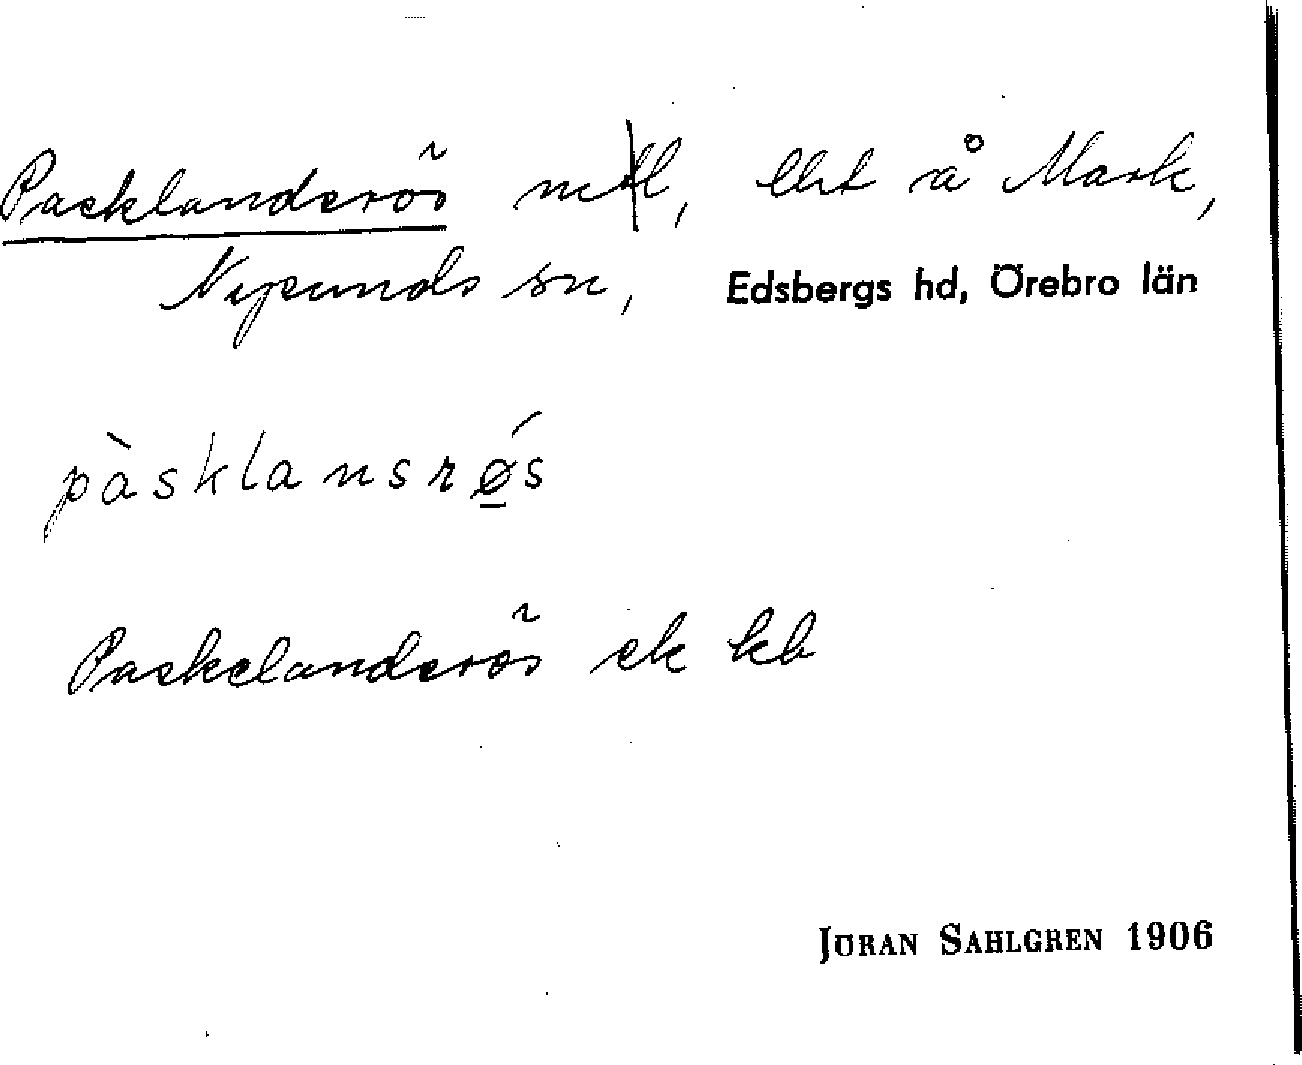 Pasklandsrös lht å Mark,
Nysunds sn, Edsbergs hd, Örebro län
pàsklansrǿ̱s
Paskelandsrös ek kb
JÖRAN SAHLGREN 1906